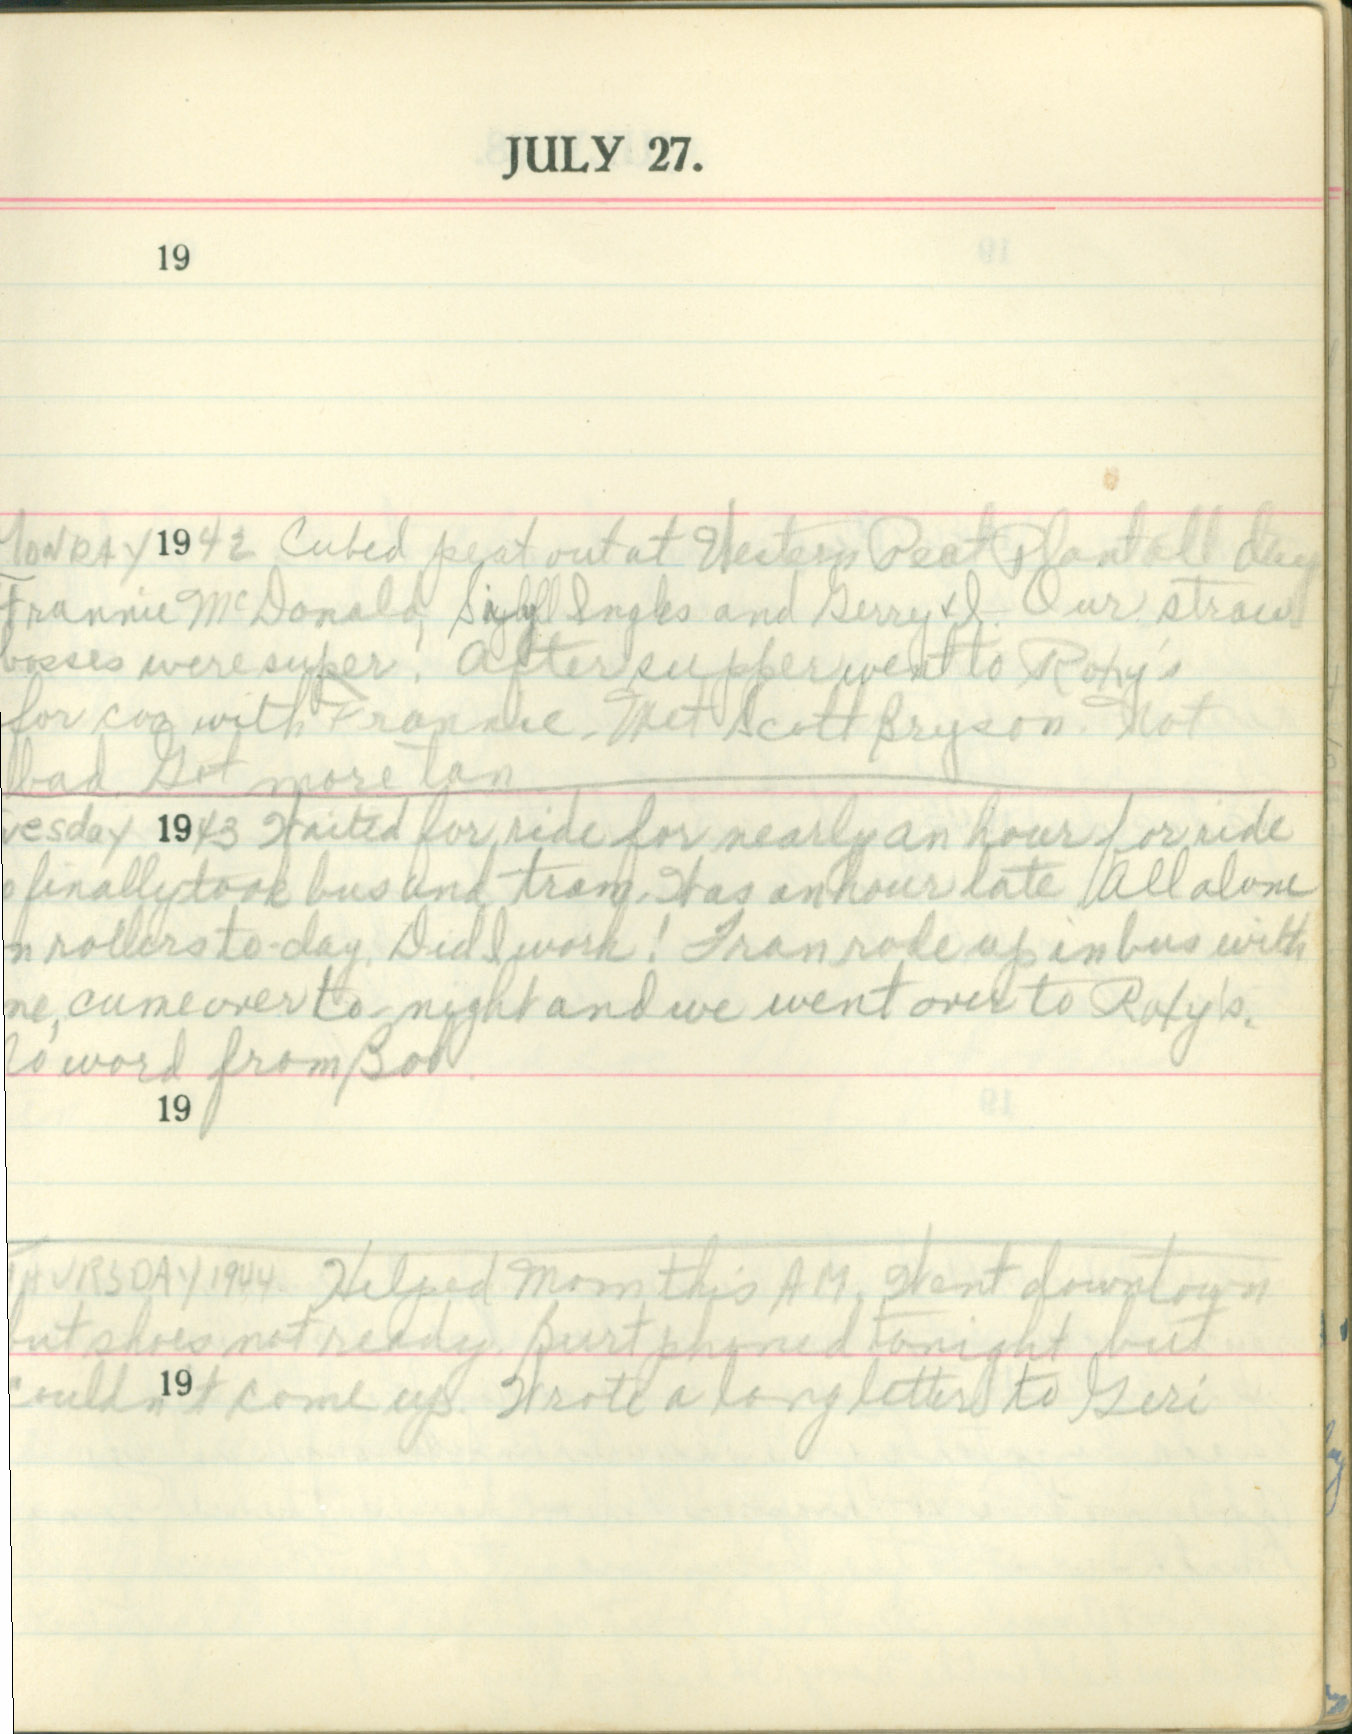 JULY 27.
19
MONDAY 1942 Cubed peat out at Western Peat Plant all day
Frannie McDonald, Sibyll Ingles and Gerry & I. Our straw
bosses were super! After supper went to Roxy's
for with Frannie. Met Scott Bryson. Not
bad. Got more tan
uesday 1943 Waited for ride for nearly an hour for ride
o finally took bus and tram. Was an hour late All alone
n rollers to-day. Did I work! Fran rode up in bus with
me, came over to-night and we went over to Roxy's.
No word from Boo.
19
THURSDAY 1944. Helped Mom this A.M. Went downtown
but shoes not ready. Burt phoned tonight but
19
couldn't come up. Wrote a long letter to Geri